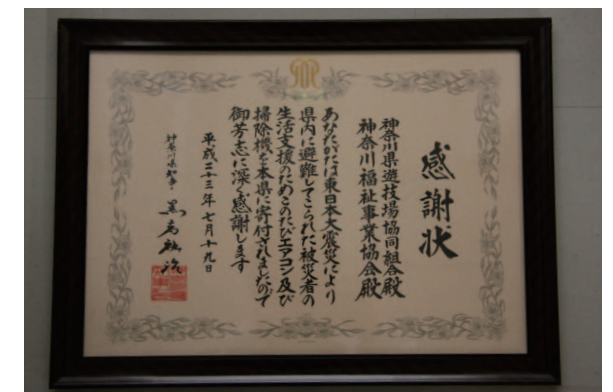 感謝状
神奈川県遊技場協同組合殿
神奈川福祉事業協会殿
あなたがたは東日本大震災により
県内に避難してこられた被災者の
生活支援のためこのたびエアコン及び
掃除機を本県に寄付されましたので
御芳志に深く感謝します
平成二十三年七月十九日
神奈川県知事 黒岩祐治